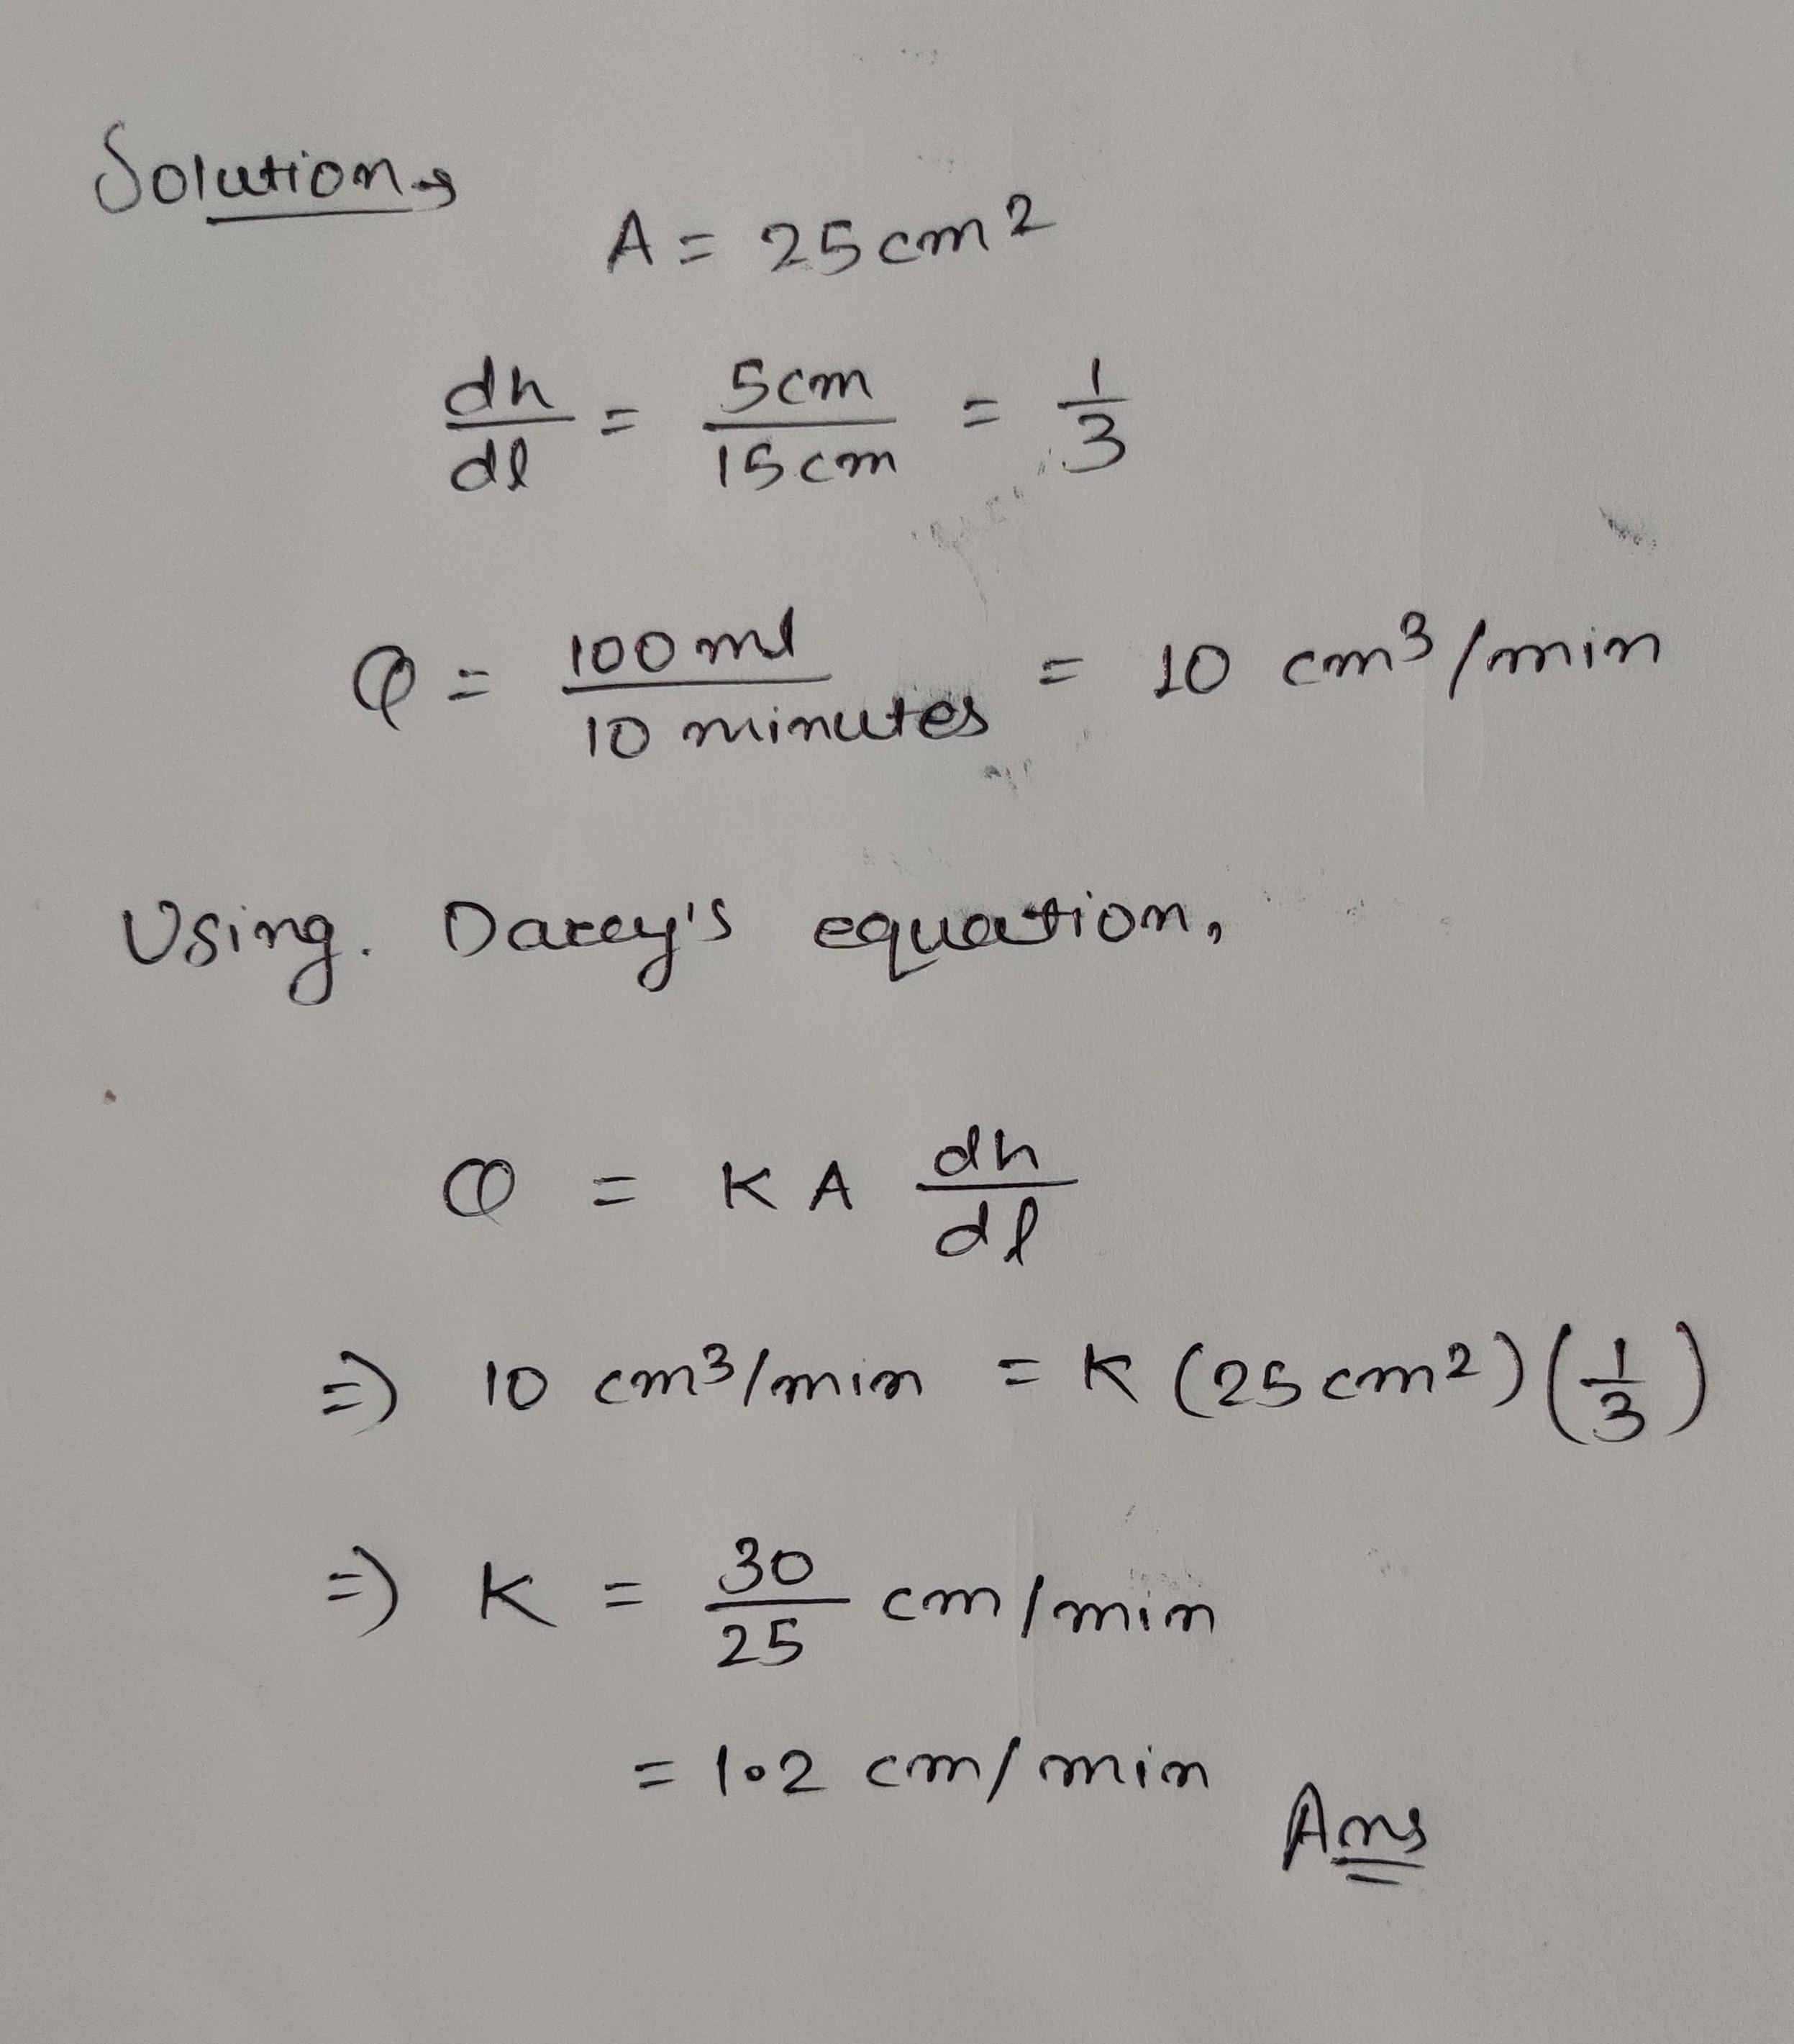 Solution →
A = 25 cm²
dh/dl = 5cm/15cm = 1/3
Q = 100 ml/10 minutes = 10 cm³/min
Using. Darcy's equation,
Q = K A dh/dl
⇒ 10 cm³/min = K (25 cm²) (1/3)
⇒ K = 30/25 cm/min
= 1.2 cm/min
Ans